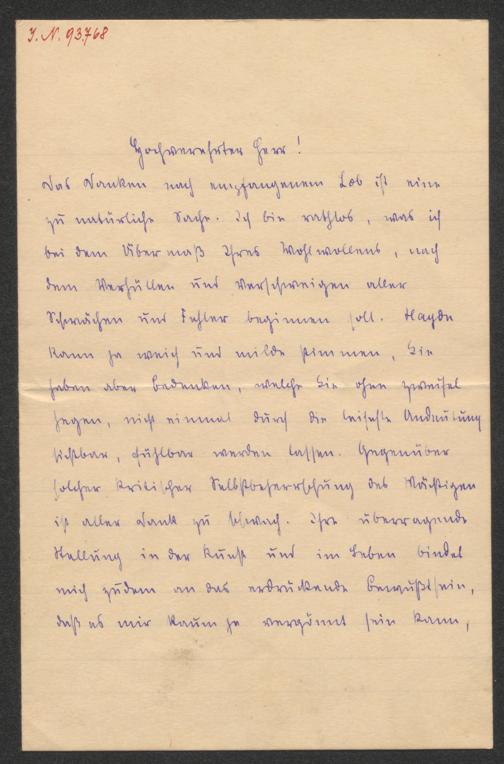 I. N. 93.768
Hochverehrter Herr!
Das Danken nach empfangenem Lob ist eine
zu natürliche Sache. Ich bin rathlos, was ich
bei dem Übermaß Ihres Wohlwollens, nach
dem Verhüllen und Verschweigen aller
Schwächen und Fehler beginnen soll. Haydn
kann ja weich und milde stimmen, Sie
haben aber Bedenken, welche Sie ohne Zweifel
hegen, nicht einmal durch die leiseste Andeutung
sichtbar, fühlbar werden lassen. Gegenüber
solcher kritischer Selbstbeherrschung des Mächtigen
ist aller Dank zu schwach. Ihre überragende
Stellung in der Kunst und im Leben bindet
mich zudem an das erdrückende Bewußtsein,
daß es mir kaum je vergönnt sein kann,